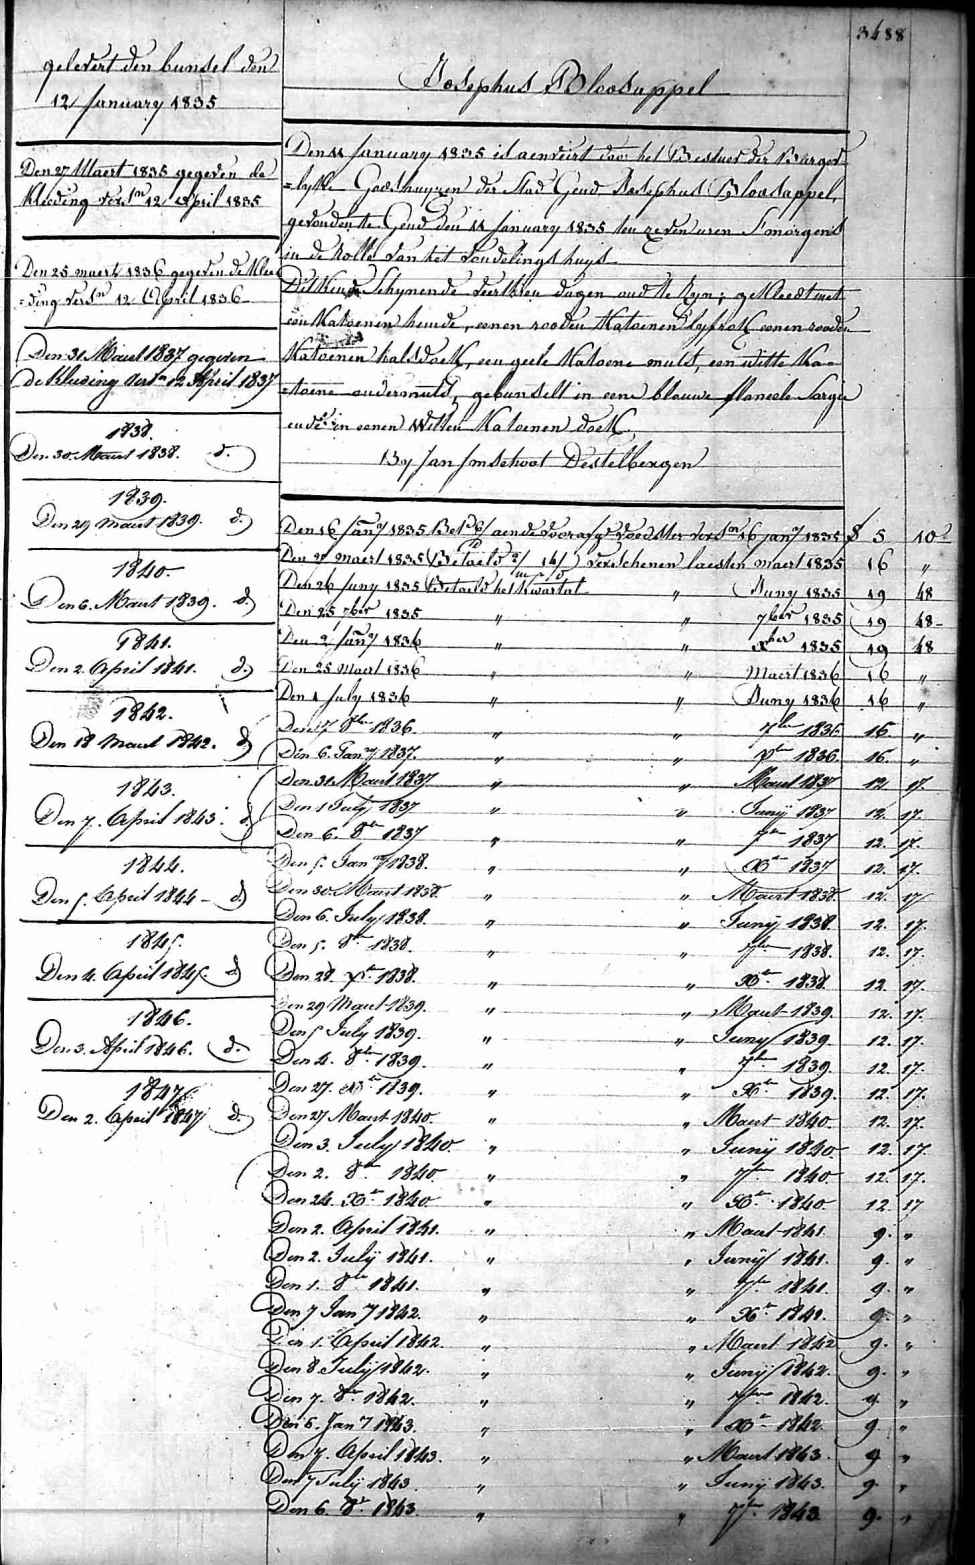 3488
gelevert den bunsel den
12 January 1835
Den 27 Maert 1835 gegeven de
Kleeding versn 12 April 1835
Den 25 maert 1836 gegeven de Klee
=ding versn 12 April 1836
Den 31 Maert 1837 gegeven
de Kleeding versn 12 April 1837
1838.
Den 30 Maert 1838. d.
1839.
Den 29 maert 1839. d.
1840.
Den 6. Maert 1839. d.
1841.
Den 2. April 1841. d.
1842.
Den 18 Maert 1842. d.
1843.
Den 7. April 1843. d.
1844.
Den 5. April 1844 - d.
1845.
Den 4. April 1845. d.
1846.
Den 3. April 1846. d.
1847
Den 2. April 1847 d.
Josephus Bloosappel
Den 11 January 1835 is aenveirt door het Bestuer der Burger-
=lyke Godshuyzen der Stad Gend Josephus Bloosappel,
gevonden te Gend den 11 January 1835 ten zeven uren S'morgens
in de Rolle van het Vondelings huys
Dit Kend Schynende veerthien dagen oud te zyn; gekleed met
een Katoenen hemde, eenen rooden Katoenen Lyfrok eenen rooden
Katoenen halsdoek, een geele Katoene muts, een witte Ka-
=toene ondermuts, gebunselt in eene blauwe flaneele Sargie
ende in eenen Witten Katoenen doek.
By Jan Destelbergen
Den 16 Jany 1835 Bet aen de voedster versn 16 jany 1835 5 10
Den 27 maert 1835 Betaeld verschenen laesten maert 1835 16 "
Den 26 Juny 1835 Betaeld het Kwartal " Juny 1835 19 48
Den 25 7ber 1835 " " 7ber 1835 19 48
Den 2 Jany 1836 " " Xber 1835 19 48
Den 25 Maert 1836 " " Maert 1836 16 "
Den 1 July 1836 " " Juny 1836 16 "
Den 7 8ber 1836 " " 7ber 1836 16 "
Den 6. Jany 1837. " " Xber 1836 16. "
Den 31 Maert 1837 " " Maert 1837 12 17.
Den 1 July 1837 " " Junij 1837 12. 17.
Den 6. 8ber 1837 " " 7ber 1837 12. 17.
Den 5. Jany 1838. " " Xber 1837 12. 17.
Den 30 Maert 1838. " " Maert 1838. 12. 17
Den 6. July 1838. " " Junij 1838. 12. 17.
Den 5. 8ber 1838. " " 7ber 1838. 12. 17.
Den 28. Xber 1838. " " Xber 1838 12. 17.
Den 29 Maert 1839. " " Maert 1839. 12. 17.
Den 5 July 1839. " " Juny 1839. 12. 17.
Den 4. 8ber 1839. " " 7ber 1839. 12. 17.
Den 27. Xber 1839. " " Xber 1839. 12. 17.
Den 27 Maert 1840. " " Maert 1840. 12. 17.
Den 3. July 1840. " " Junij 1840 12. 17.
Den 2. 8ber 1840. " " 7ber 1840. 12. 17.
Den 24. Xber 1840. " " Xber 1840. 12. 17
Den 2. April 1841. " " Maert 1841 9. "
Den 2. Julij 1841. " " Junij 1841. 9. "
Den 1. 8ber 1841. " " 7ber 1841. 9. "
Den 7 Jany 1842. " " Xber 1841. 9. "
Den 1. April 1842. " " Maert 1842 9. "
Den 8 Julij 1842. " " Junij 1842. 9. "
Den 7. 8ber 1842. " " 7ber 1842. 9. "
Den 6. Jany 1843. " " Xber 1842. 9. "
Den 7. April 1843. " " Maert 1843. 9 "
Den 7 Julij 1843. " " Junij 1843. 9. "
Den 6. 8ber 1843. " " 7ber 1843 9. "